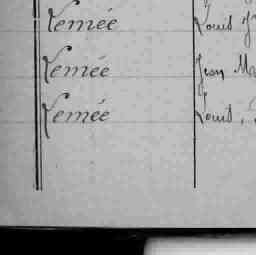 Vemée Louis
Vemée Jean Ma
Vemée Louis,